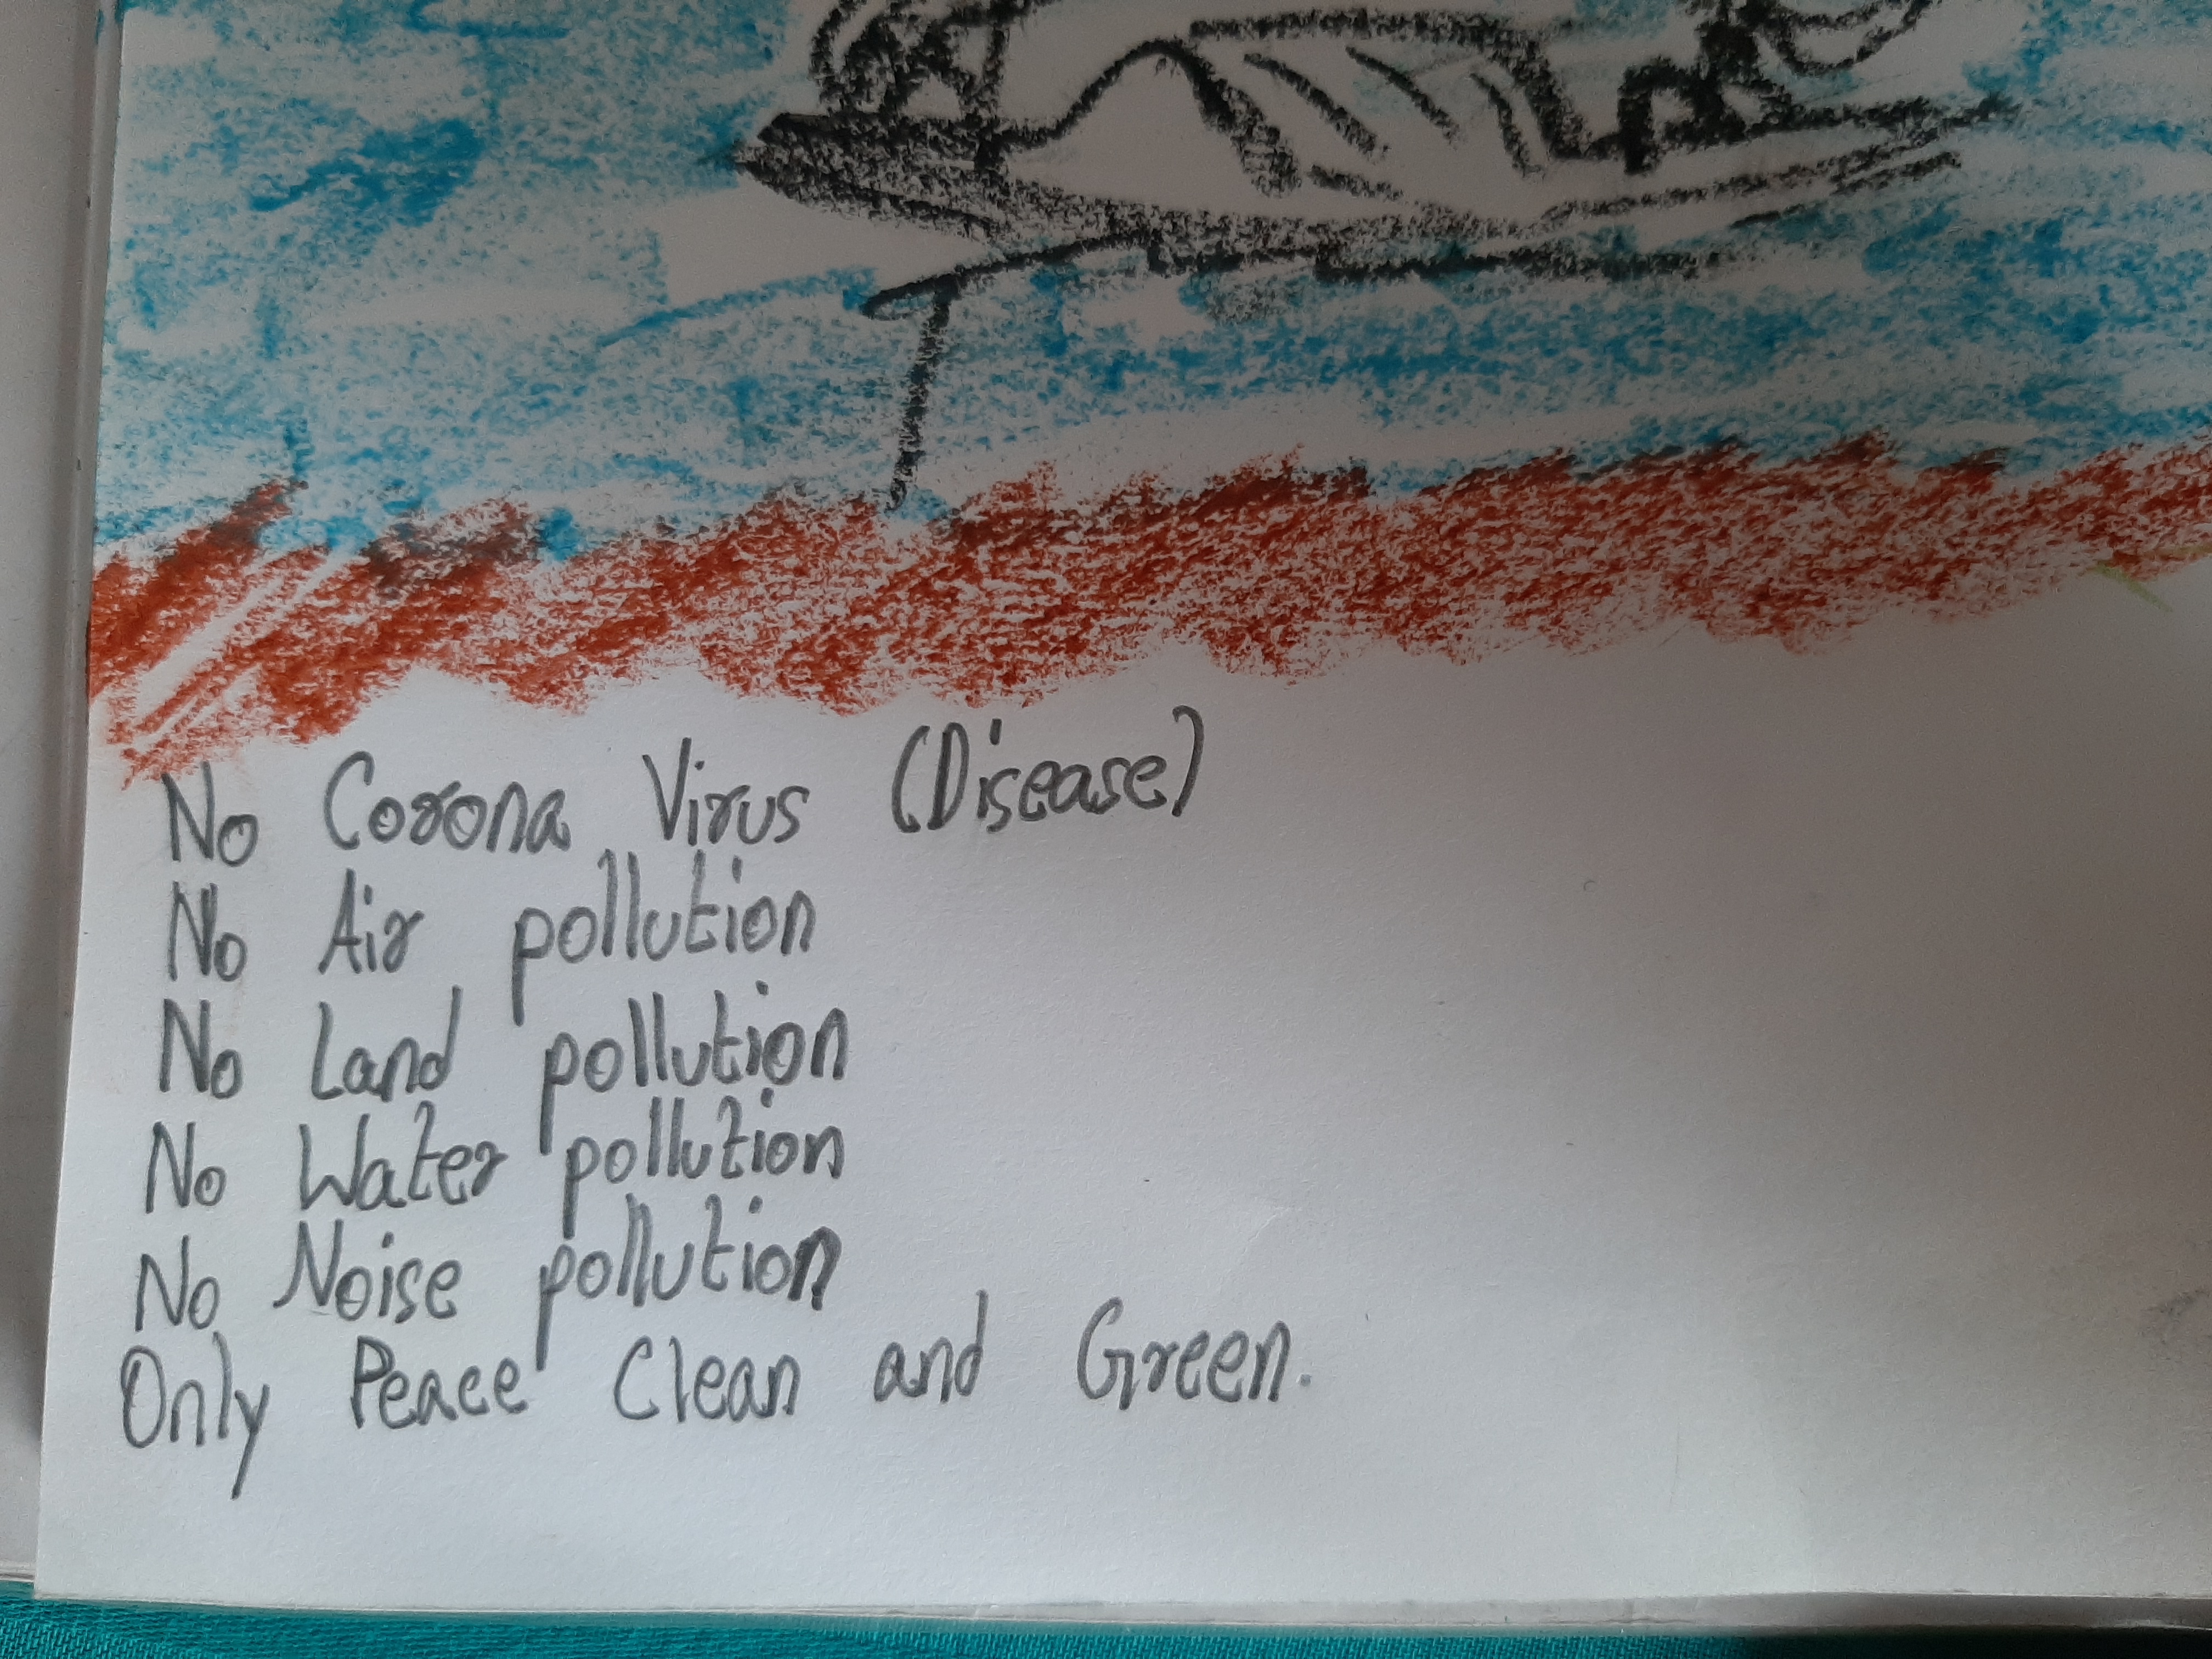 No Corona Virus (Disease)
No Air pollution
No Land pollution
No Water pollution
No Noise pollution
Only Peace Clean and Green.